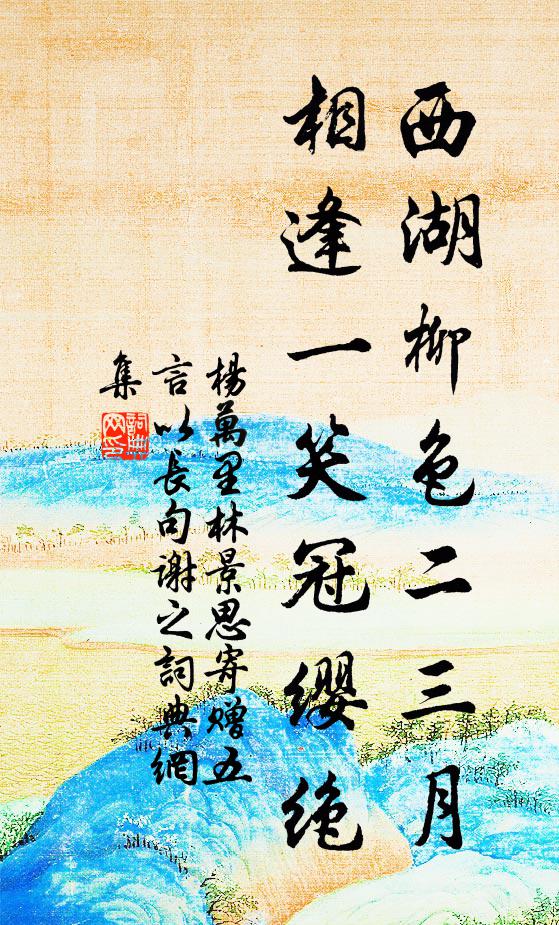 西湖柳色二三月
相逢一笑冠缨绝
楊萬里林景思寄赠五
言以长句謝之詞典網
集
詞典
网印